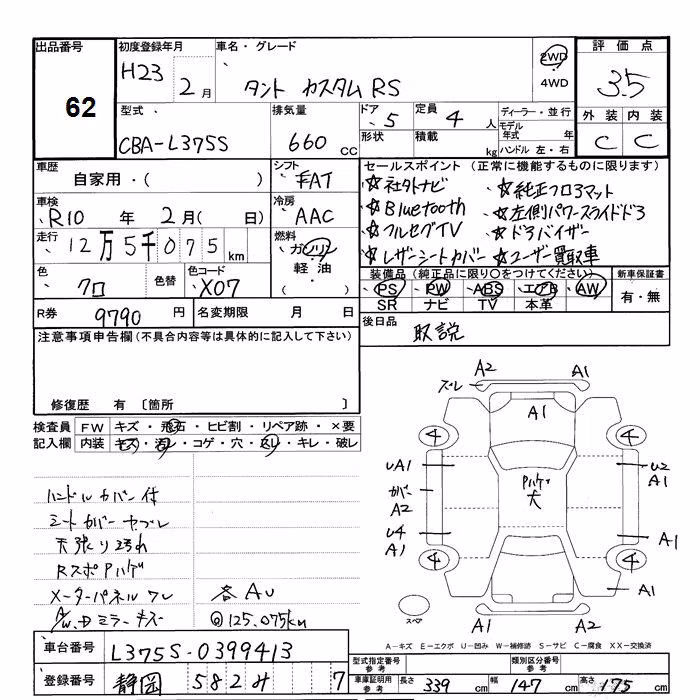 出品番号
62
初度登録年月
H23 2月
車名・グレード
タント カスタム RS
2WD
・
4WD
評価点
3.5
外装 内装
C C
型式
CBA-L375S
排気量
660 cc
ドア
5
形状
定員
4 人
積載 kg
ディーラー・並行
モデル年式 年
ハンドル 左・右
車歴
自家用・( )
シフト
FAT
車検
R10 年 2月( 日)
冷房
AAC
走行
12万5千075 km
燃料
ガソリン
軽油
( )
色
クロ
色替
色コード
X07
R券 9790 円
名変期限 月 日
セールスポイント (正常に機能するものに限ります)
☆社外ナビ
☆Bluetooth
☆フルセグTV
☆レザーシートカバー
☆純正フロアマット
☆左側パワースライドドア
☆ドアバイザー
☆ユーザー買取車
装備品(純正品に限り○をつけてください)
PS PW ABS エアB AW
SR ナビ TV 本革
新車保証書
有・無
後日品
取説
注意事項申告欄(不具合内容等は具体的に記入して下さい)
修復歴 有 〔箇所 〕
検査員記入欄
FW キズ・飛石・ヒビ割・リペア跡・×要
内装 キズ・汚レ・コゲ・穴・スレ・キレ・破レ
ハンドルカバー付
シートカバーヤブレ
天張り汚れ
RスポPハゲ
メーターパネルワレ
A/W、ミラーキズ
各AU
@125.075km
ズレ A2 A1
A1
4 4
UA1
カバー
A2
U4
A1
Pハゲ
大
U2
A1
A1
4 4
A1
スペア
A1 A2
A-キズ E-エクボ U-凹み W-補修跡 S-サビ C-腐食 XX-交換済
車台番号
L375S-0399413
登録番号
静岡 582 み 7
型式指定番号
参考
類別区分番号
参考
車庫証明用
参考
長さ 339 cm
幅 147 cm
高さ 175 cm